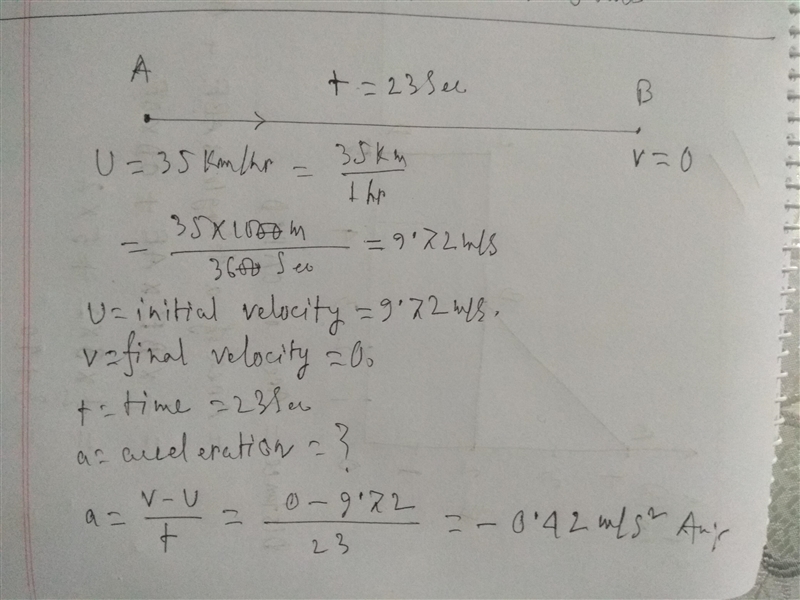 A
t = 23 Sec
B
U = 35 Km/hr = 35 Km / 1 hr
v = 0
= 35 × 1000 m / 3600 Sec = 9.72 m/s
U = initial velocity = 9.72 m/s.
v = final velocity = 0.
t = time = 23 Sec
a = acceleration = ?
a = v - U / t = 0 - 9.72 / 23 = - 0.42 m/s² Ans